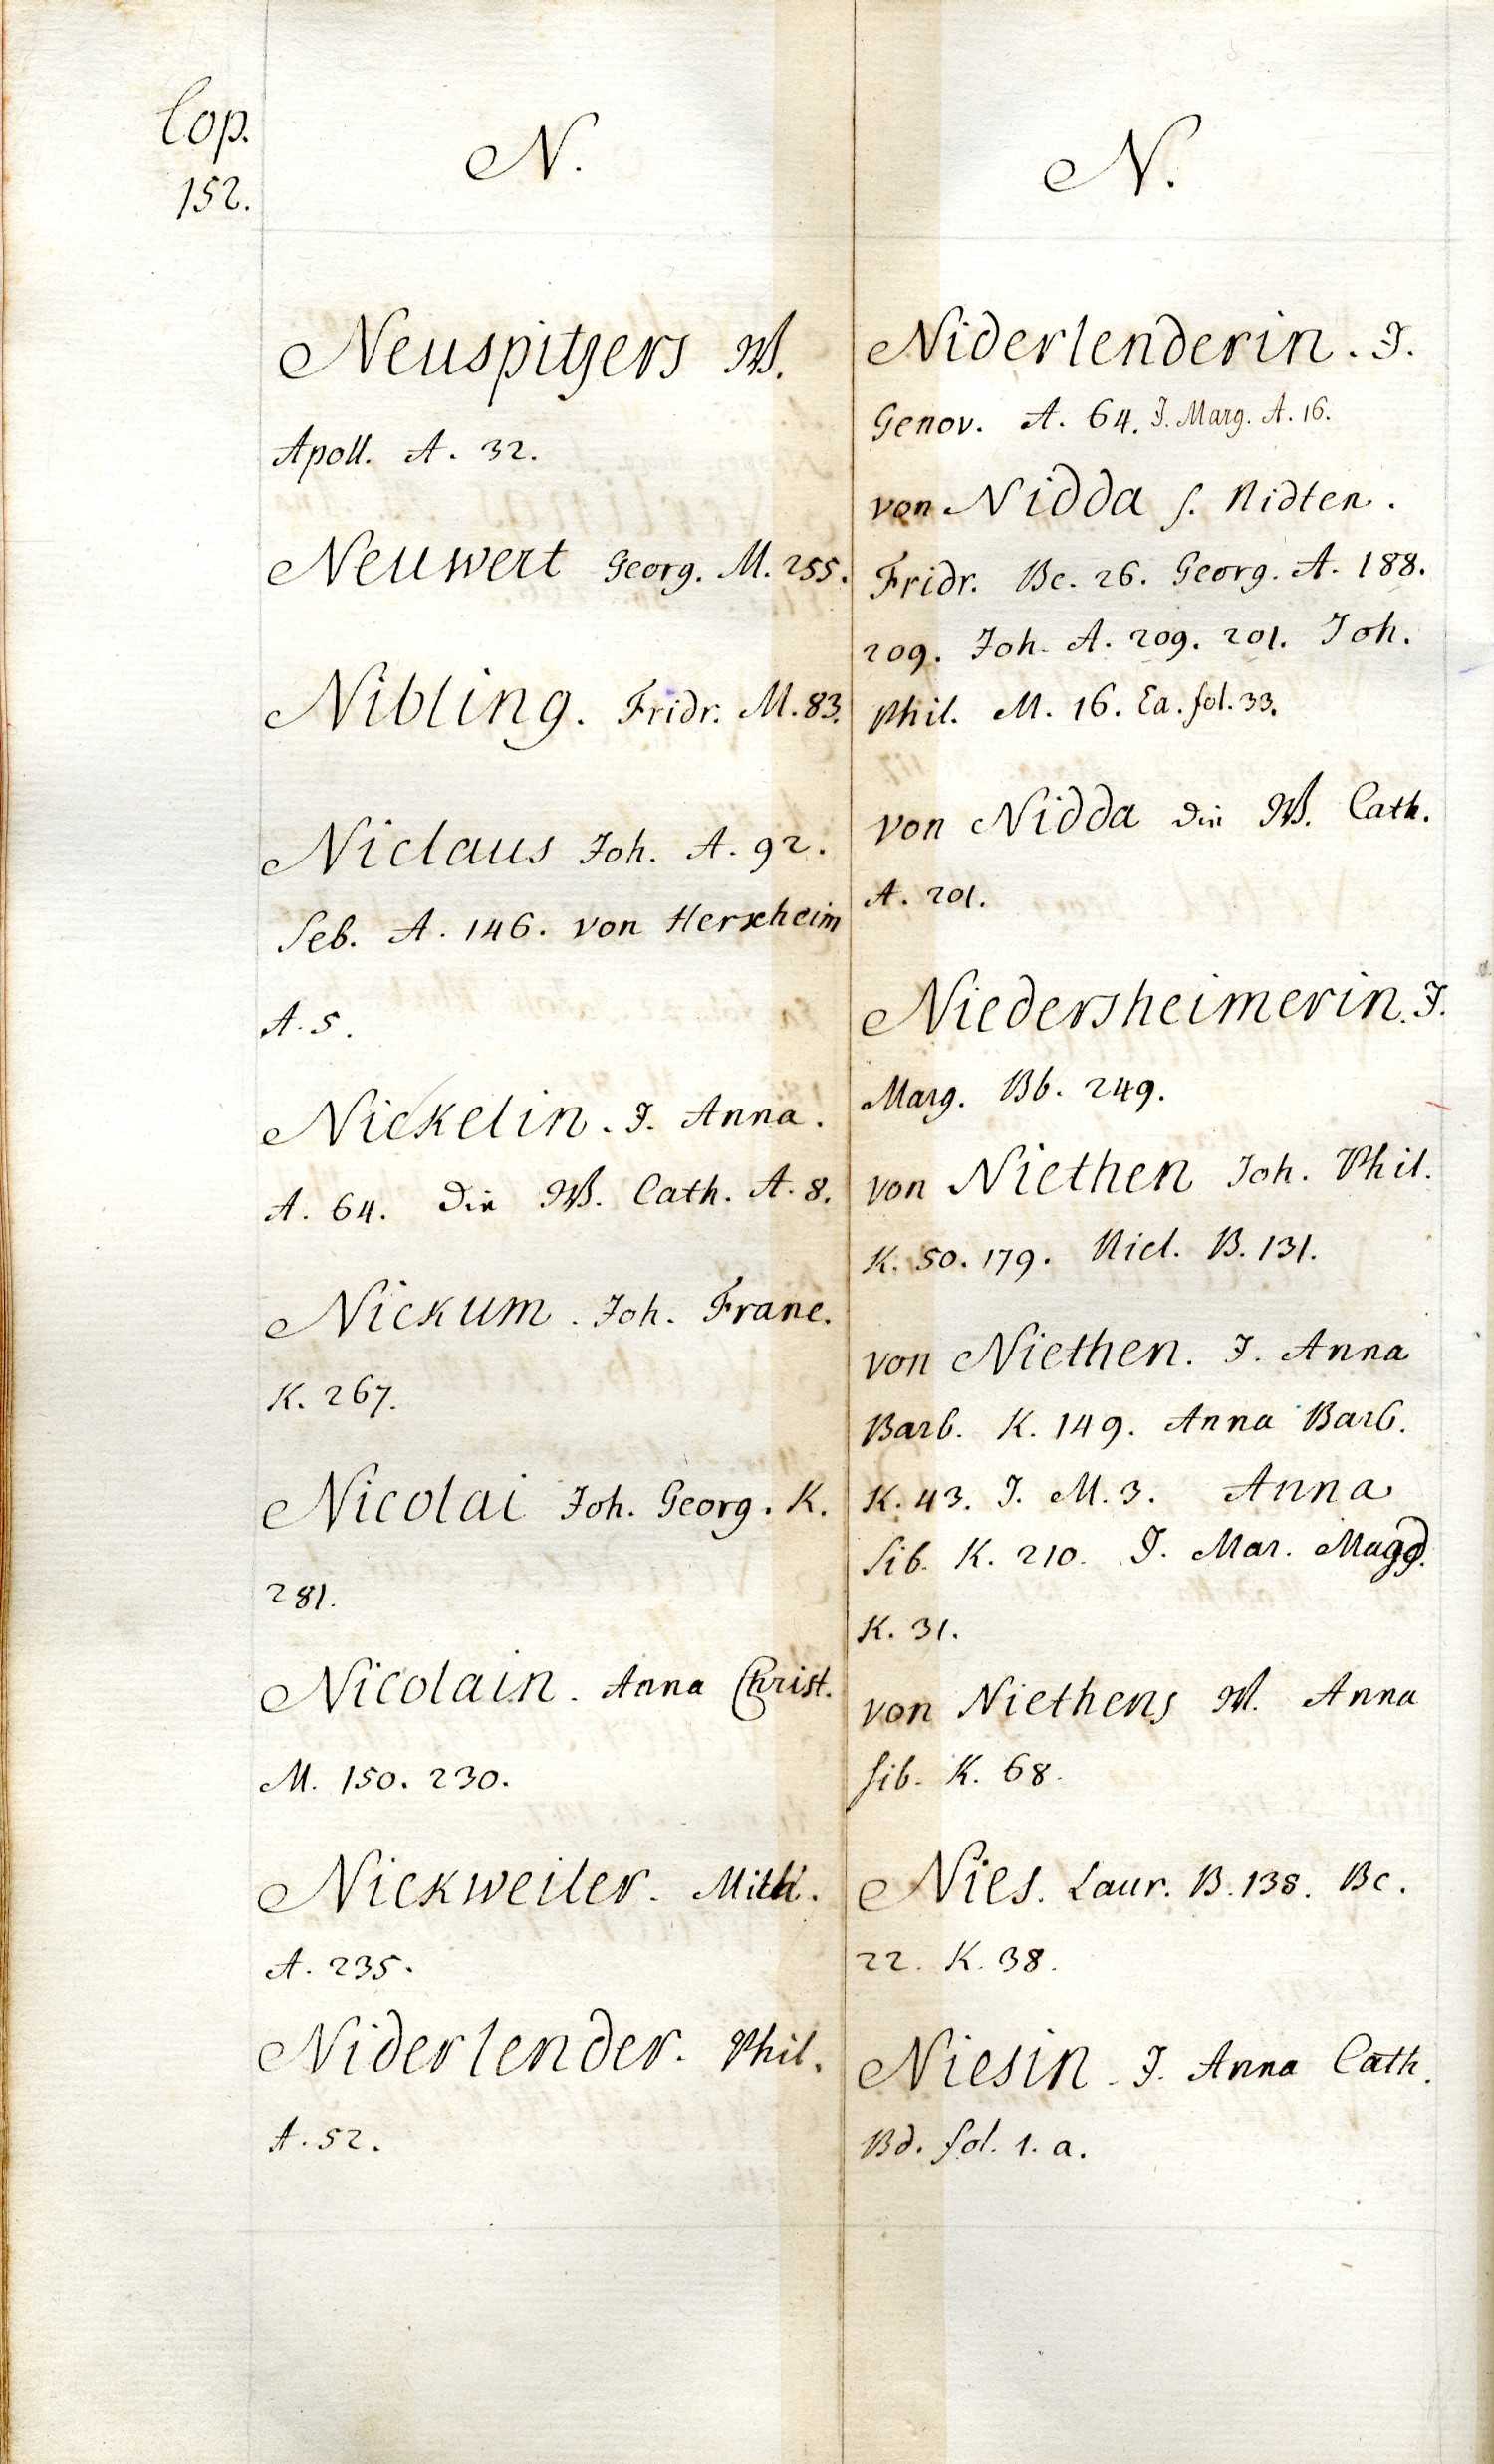 Cop.
152.
N.
Neuspitzers W.
Apoll. A. 32.
Neuwert Georg. M. 255.
Nibling. Fridr. M. 83.
Niclaus Joh. A. 92.
Seb. A. 146. von Herxheim
A. 5.
Nickelin. J. Anna.
A. 64. die W. Cath. A. 8.
Nickum. Joh. Franc.
K. 267.
Nicolai Joh. Georg. K.
281.
Nicolain. Anna Christ.
M. 150. 230.
Nickweiler.
A. 235.
Niderlender. Phil.
A. 52.
N.
Niderlenderin. J.
Genov. A. 64. J. Marg. A. 16.
von Nidda s. Nidten.
Fridr. Bc. 26. Georg. A. 188.
209. Joh. A. 209. 201. Joh.
Phil. M. 16. Ea. fol. 33.
von Nidda die W. Cath.
A. 201.
Niedersheimerin. J.
Marg. Bb. 249.
von Niethen Joh. Phil.
K. 50. 179. Nicl. B. 131.
von Niethen. J. Anna
Barb. K. 149. Anna Barb.
K. 43. J. M. 3. Anna
Sib. K. 210. J. Mar. Magd.
K. 31.
von Niethens W. Anna
Sib. K. 68.
Nies. Laur. B. 138. Bc.
22. K. 38.
Niesin. J. Anna Cath.
Bd. fol. 1. a.